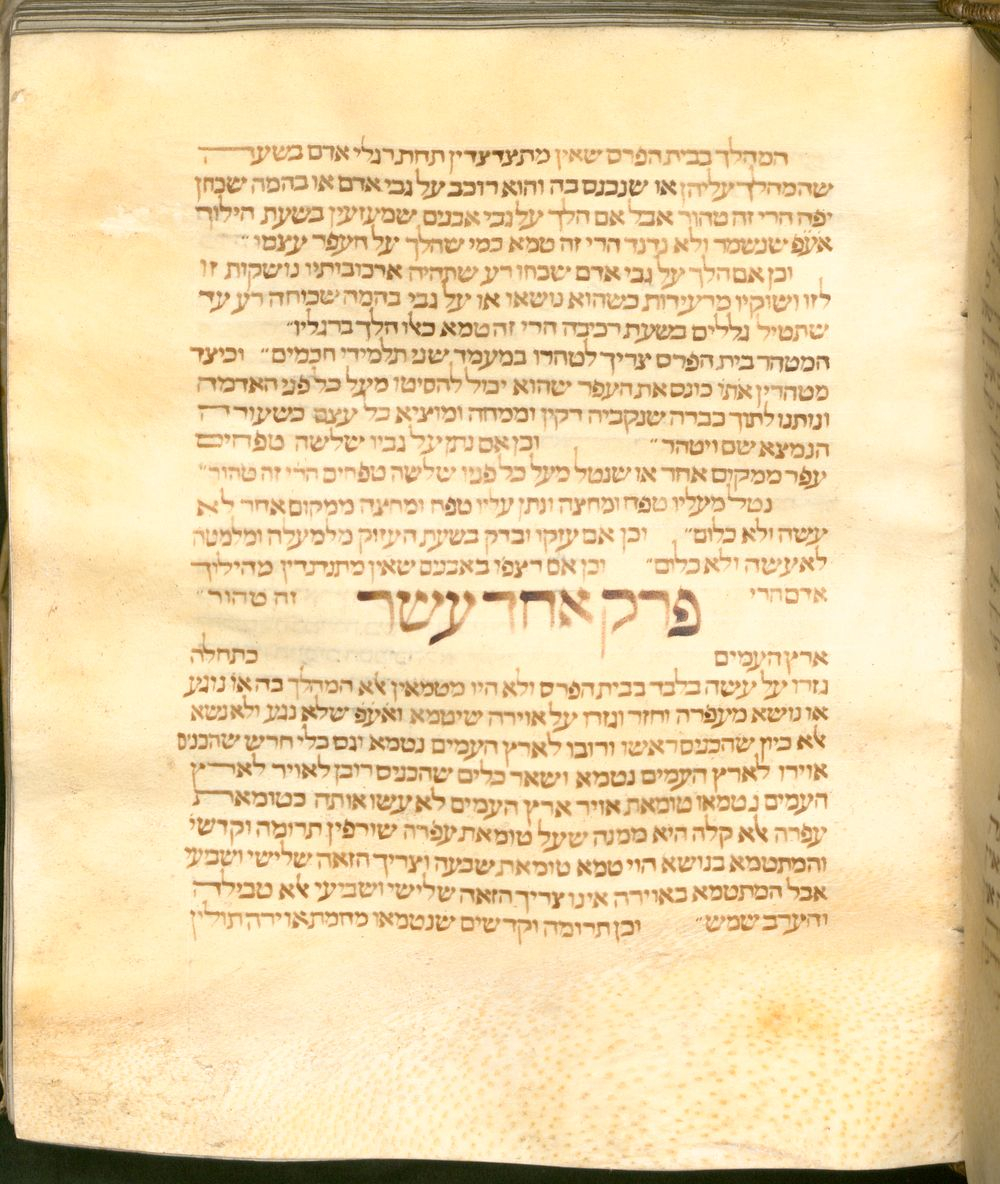 המהלך בבית הפרס שאין מתצדצדין תחת רגלי אדם בשעה
שהמהלך עליהן או שנכנס בה והוא רוכב על גבי אדם או בהמה שכחן
יפה הרי זה טהור אבל אם הלך על גבי אבנים שמזעזעין בשעת הילוך
אעפ שנשמר ולא נדנד הרי זה טמא כמי שהלך על העפר עצמו״
וכן אם הלך על גבי אדם שכחו רע שתהיה ארכובותיו נושקות זו
לזו ושוקיו מרעידות כשהוא נושאו או על גבי בהמה שכוחה רע עד
שתטיל גללים בשעת רכיבה הרי זה טמא כאלו הלך ברגליו״
המטהר בית הפרס צריך לטהרו במעמד שני תלמידי חכמים״ וכיצד
מטהרין אתו כונס את העפר שהוא יכול להסיטו מעל כל פני האדמה
ונותנו לתוך כברה שנקביה דקין וממחה ומוציא כל עצם כשעורה
הנמצא שם ויטהר״ וכן אם נתן על גביו שלשה טפחים
עפר ממקום אחר או שנטל מעל כל פניו שלשה טפחים הרי זה טהור״
נטל מעליו טפח ומחצה ונתן עליו טפח ומחצה ממקום אחר לא
עשה ולא כלום״ וכן אם עזקו ובדק בשעת העזוק מלמעלה ומלמטה
לא עשה ולא כלום״ וכן אם רצפו באבנים שאין מתנדנדין מהיליך
אדם הרי זה טהור״
פרק אחד עשר
ארץ העמים כתחלה
גזרו על עשה בלבד בבית הפרס ולא היו מטמאין אלא המהלך בה או נוגע
או נושא מעפרה וחזר וגזרו על אוירה שיטמא ואעפ שלא נגע ולא נשא
אלא כיון שהכניס ראשו ורובו לארץ העמים נטמא וגם כלי חרש שהכניס
אוירו לארץ העמים נטמא ושאר כלים שהכניס רובן לאויר לארץ
העמים נטמאו טומאת אויר ארץ העמים לא עשו אותה כטומאת
עפרה אלא קלה היא ממנה שעל טומאת עפרה שורפין תרומה וקדשי
והמתטמא בנושא הוי טמא טומאת שבעה וצריך הזאה שלישי ושביעי
אבל המתטמא באוירה אינו צריך הזאה שלישי ושביעי אלא טבילה
והערב שמש״ וכן תרומה וקדשים שנטמאו מחמת אוירה תולין